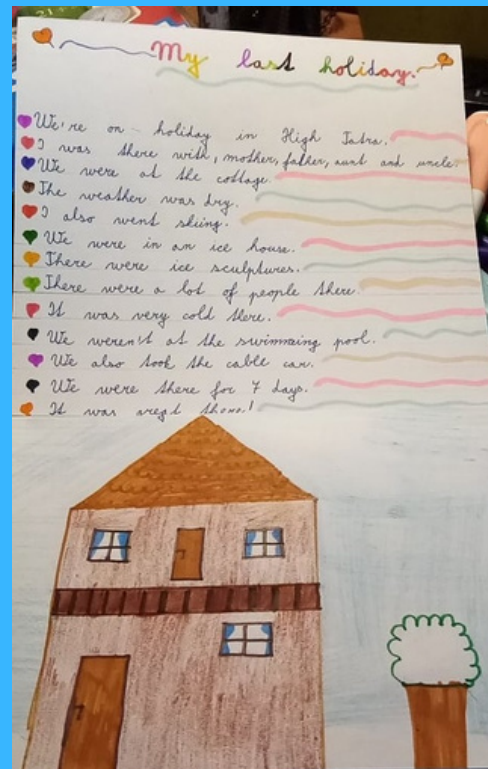 My last holiday.
We're on holiday in High Tatra.
I was there with, mother, father, aunt and uncle.
We were at the cottage.
The weather was dry.
I also went skiing.
We were in an ice house.
There were ice sculptures.
There were a lot of people there.
It was very cold there.
We weren't at the swimming pool.
We also took the cable car.
We were there for 7 days.
It was there!